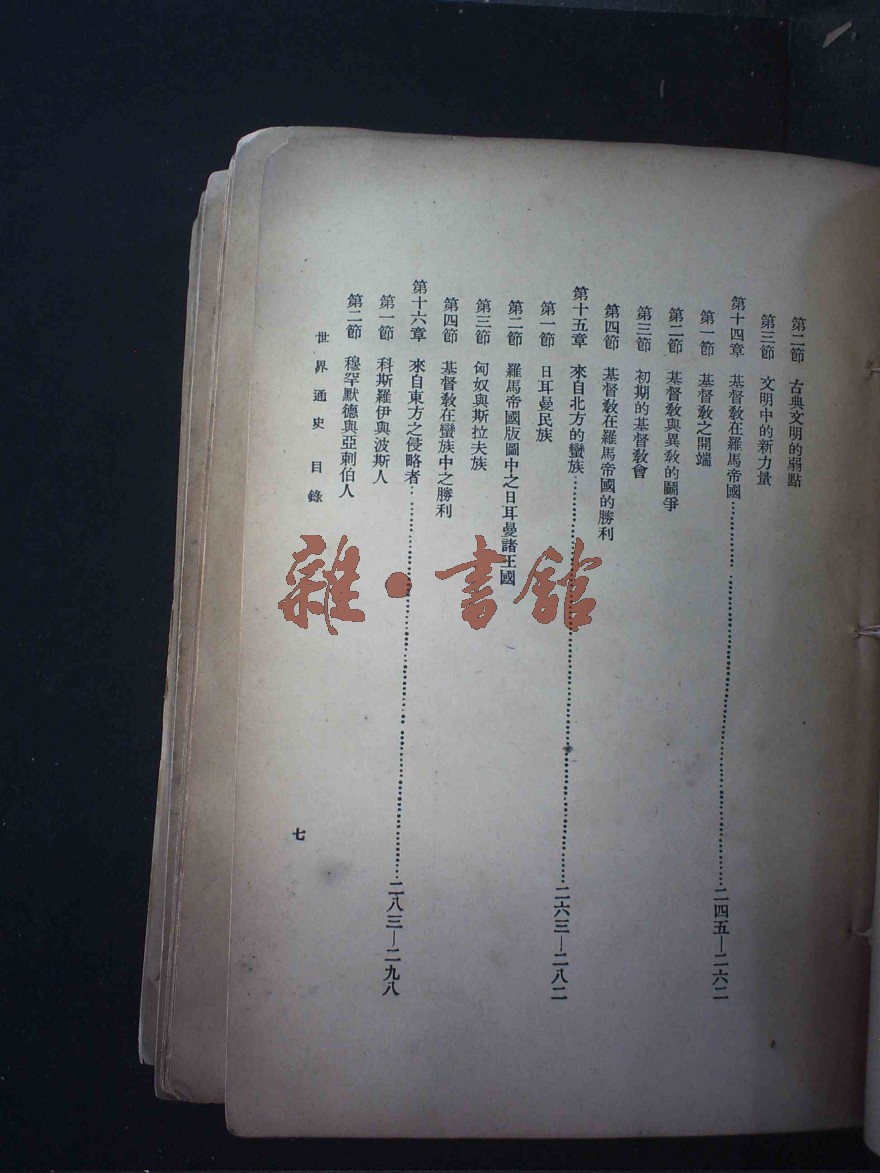 第二節　古典文明的弱點
第三節　文明中的新力量
第十四章　基督敎在羅馬帝國……………………二四五—二六二
第一節　基督敎之開端
第二節　基督敎與異敎的鬭爭
第三節　初期的基督敎會
第四節　基督敎在羅馬帝國的勝利
第十五章　來自北方的蠻族……………………二六三—二八二
第一節　日耳曼民族
第二節　羅馬帝國版圖中之日耳曼諸王國
第三節　匈奴與斯拉夫族
第四節　基督敎在蠻族中之勝利
第十六章　來自東方之侵略者……………………二八三—二九八
第一節　科斯羅伊與波斯人
第二節　穆罕默德與亞剌伯人
世界通史　目錄
七
雜·書館